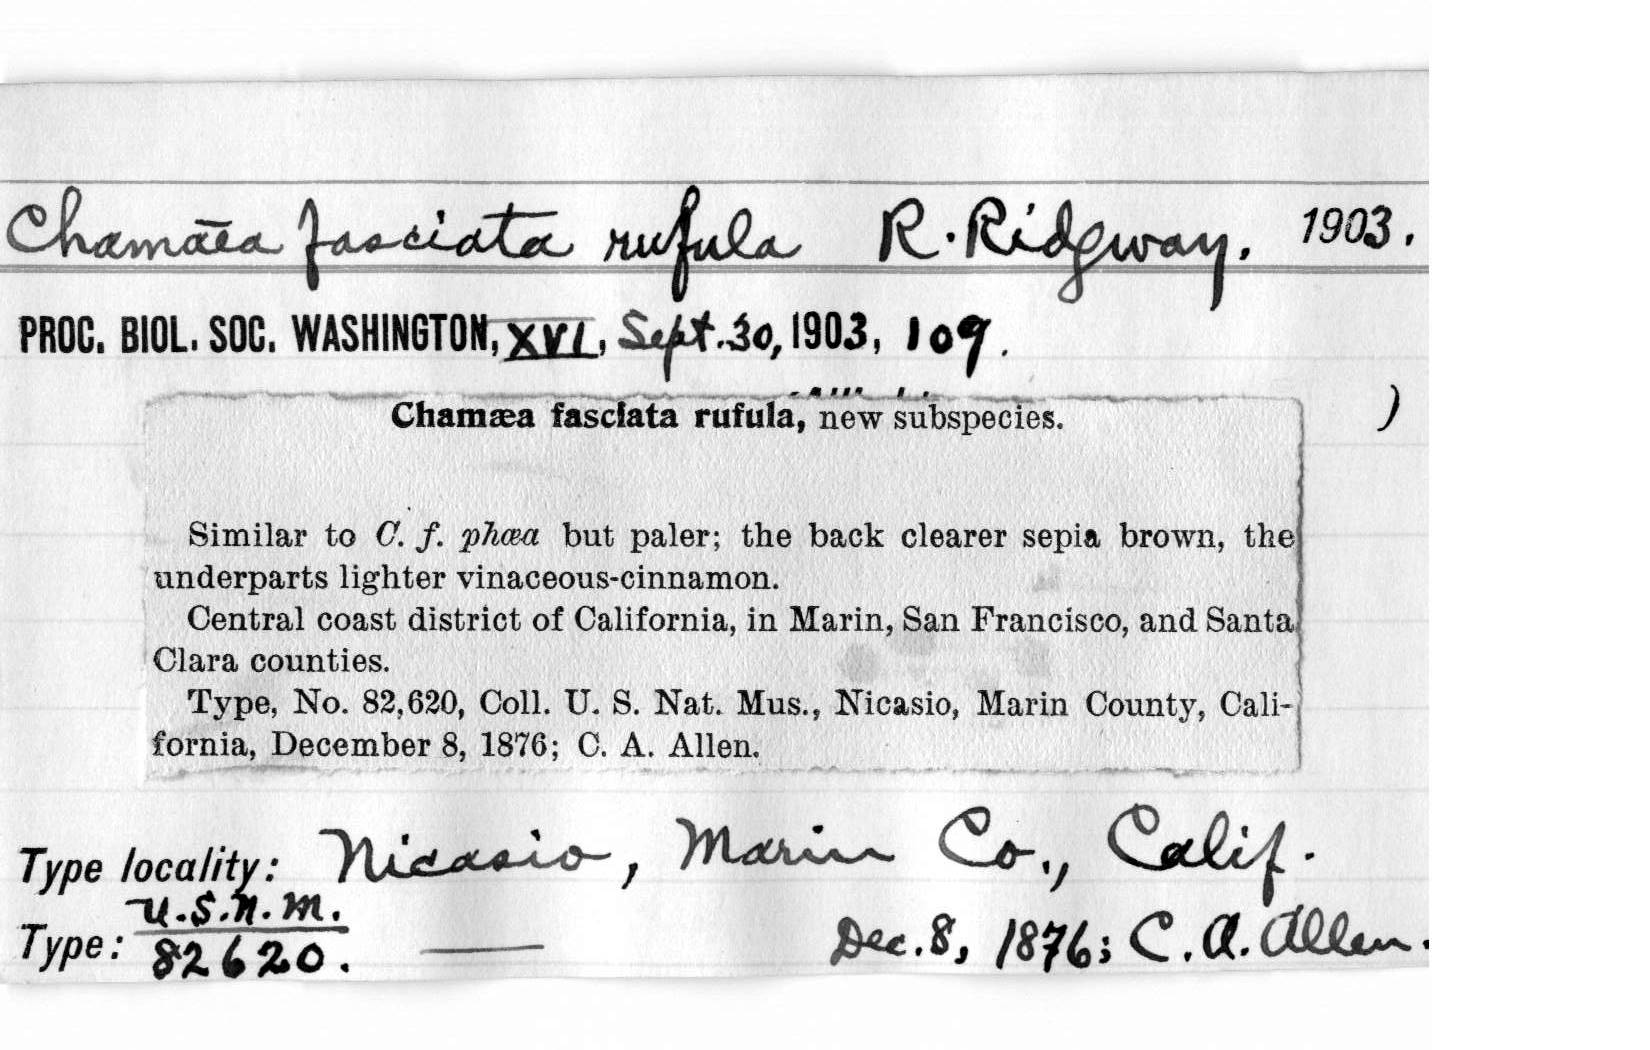 Chamæa fasciata rufula R. Ridgway. 1903.
PROC. BIOL. SOC. WASHINGTON, XVI, Sept. 30, 1903, 109.
)
Chamæa fasciata rufula, new subspecies.
Similar to C. f. phæa but paler; the back clearer sepia brown, the
underparts lighter vinaceous-cinnamon.
Central coast district of California, in Marin, San Francisco, and Santa
Clara counties.
Type, No. 82,620, Coll. U. S. Nat. Mus., Nicasio, Marin County, Cali-
fornia, December 8, 1876; C. A. Allen.
Type locality: Nicasio, Marin Co., Calif.
U.S.N.M.
Type: 82620. — Dec. 8, 1876; C. A. Allen.